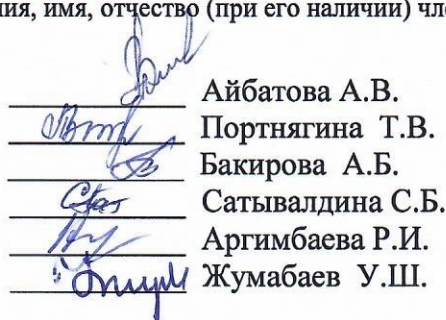 ия, имя, отчество (при его наличии) чле
Айбатова А.В.
Портнягина Т.В.
Бакирова А.Б.
Сатывалдина С.Б.
Аргимбаева Р.И.
Жумабаев У.Ш.